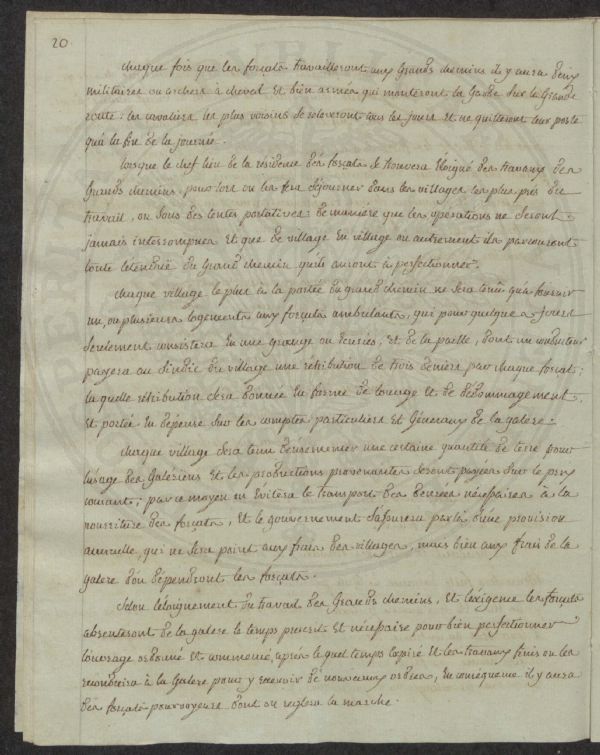 20.
chaque fois que les forçats travailleront aux Grands chemins il y aura deux
militaires ou archers à cheval et bien armés qui monteront la Garde sur la Grande
route: les cavaliers les plus voisins se releveront tous les jours et ne quitteront leur poste
qu'à la fin de la journée.
lorsque le chef lieu de la résidence des forçats se trouvera éloigné des travaux des
Grands chemins, pour lors on les fera séjourner dans les villages les plus près du
travail, ou sous des tentes portatives: de manière que les opérations ne seront
jamais interrompues et que de village en village ou autrement ils parcourent
toute l'étendüe du Grand chemin qu'ils auront à perfectionner.
chaque village le plus à la portée du grand chemin ne sera tenu qu'à fournir
un, ou plusieurs logements aux forçats ambulants, qui pour quelques jours
seulement consistera en une grange ou écuries, et de la paille, dont un conducteur
payera au sindic du village une rétribution de trois deniers par chaque forçat;
la quelle rétribution sera donnée en forme de louage et de dédommagement
et portée en dépense sur les comptes particuliers et Géneraux de la galere.
chaque village sera tenu d'ensemencer une certaine quantité de terre pour
l'usage des Galériens et les productions provenantes seront payées sur le prix
courant; par ce moyen on évitera le transport des denrées nécessaires à la
nourriture des forçats, et le gouvernement s'assurera par là d'une provision
annuelle, qui ne sera point aux frais des villages, mais bien aux frais de la
galere d'où dépendront les forçats.
selon l'eloignement du travail des Grands chemins, et l'exigence les forçats
absenteront de la galere le temps prescrit et nécessaire pour bien perfectionner
l'ouvrage ordonné et commencé, après le quel temps expiré et les travaux finis on les
reconduira à la Galere pour y recevoir de nouveaux ordres, en conséquence il y aura
des forçats pourvoyeurs dont on reglera la marche.